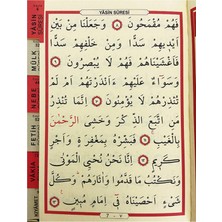 YÂSÎN SÛRESİ
فَهُمْ مُقْمَحُونَ ۝ وَجَعَلْنَا مِنْ بَيْنِ
اَيْدِيهِمْ سَدًّا وَمِنْ خَلْفِهِمْ سَدًّا
فَاَغْشَيْنَاهُمْ فَهُمْ لَا يُبْصِرُونَ ۝
وَسَوَاءٌ عَلَيْهِمْ ءَاَنْذَرْتَهُمْ اَمْ لَمْ
تُنْذِرْهُمْ لَا يُؤْمِنُونَ ۝ اِنَّمَا تُنْذِرُ
مَنِ اتَّبَعَ الذِّكْرَ وَخَشِيَ الرَّحْمٰنَ
بِالْغَيْبِ فَبَشِّرْهُ بِمَغْفِرَةٍ وَاَجْرٍ
كَرِيمٍ ۝ اِنَّا نَحْنُ نُحْيِي الْمَوْتٰى
وَنَكْتُبُ مَا قَدَّمُوا وَاٰثَارَهُمْ وَكُلَّ
شَيْءٍ اَحْصَيْنَاهُ فِي اِمَامٍ مُبِينٍ ۝
7 - ٧
YÂSİN SÛRESİ
MÜLK
NEBE
FETİH
VÂKIA
KIYÂMET